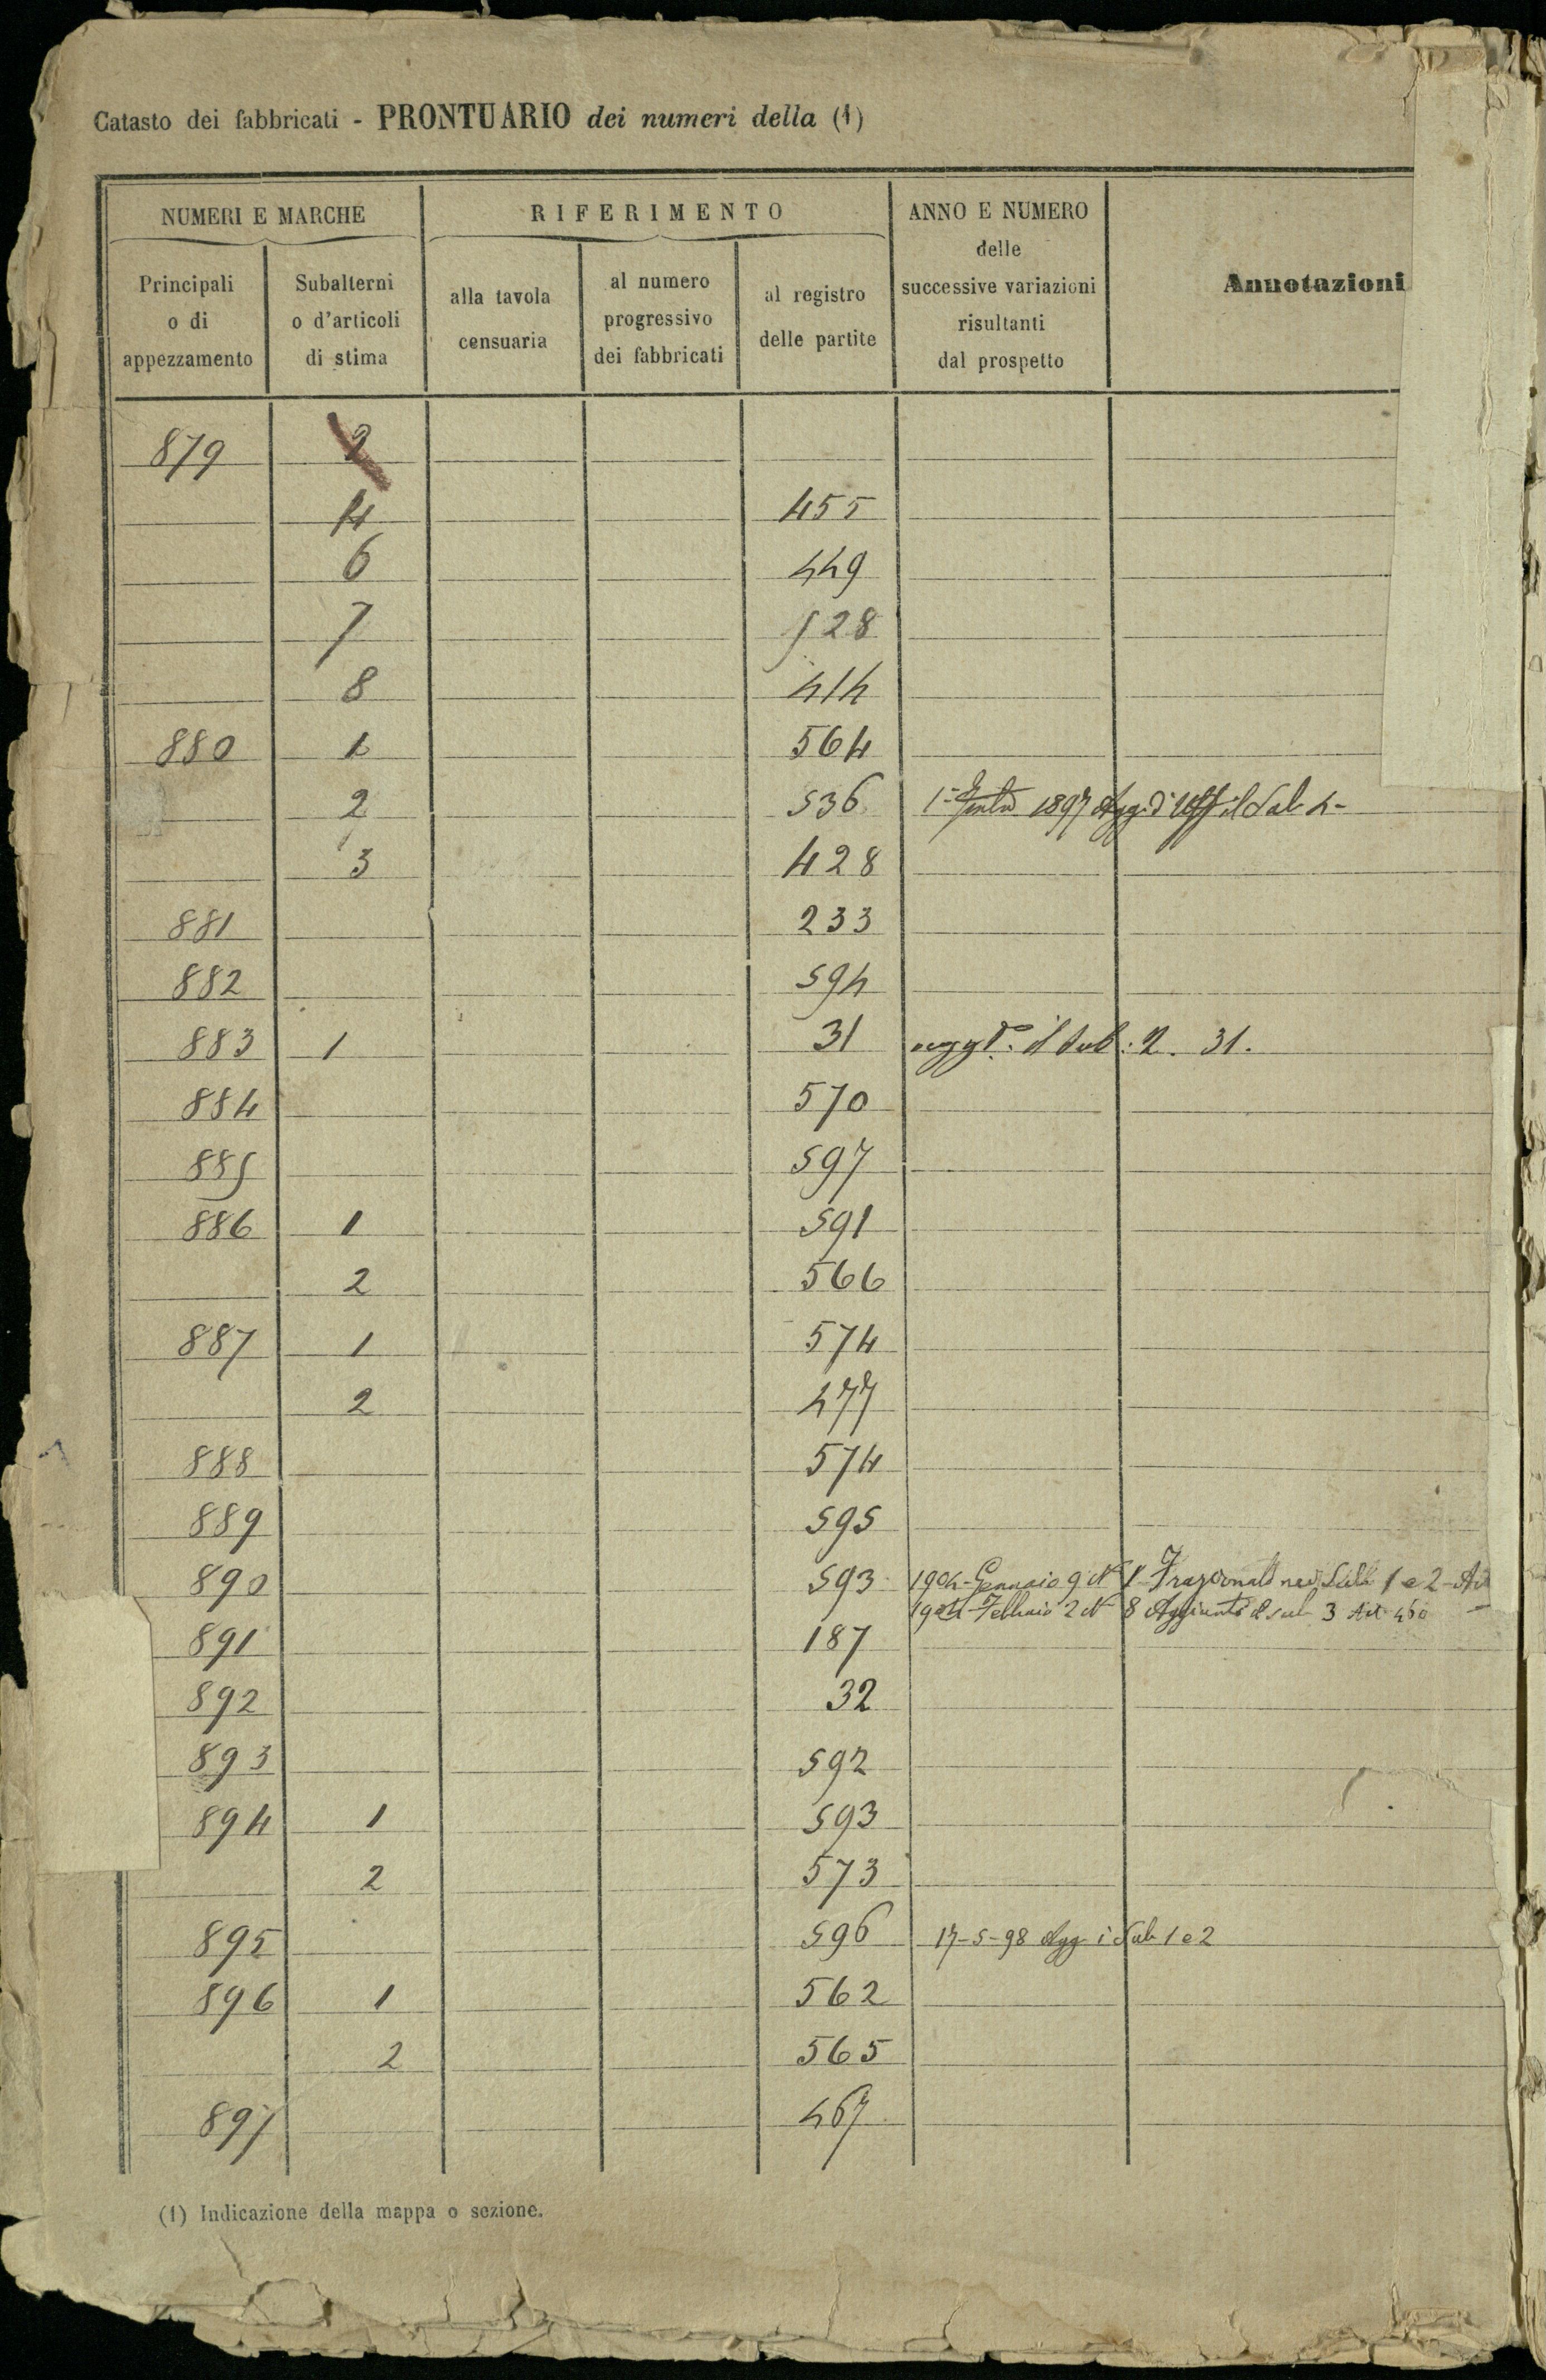 Catasto dei fabbricati - PRONTUARIO dei numeri della (1)
NUMERI E MARCHE
RIFERIMENTO
ANNO E NUMERO
delle
successive variazioni
risultanti
dal prospetto
Annotazioni
Principali
o di
appezzamento
Subalterni
o d'articoli
di stima
alla tavola
censuaria
al numero
progressivo
dei fabbricati
al registro
delle partite
879 2
4 455
6 449
7 528
8 414
880 1 564
2 536 1897 Agg. il Sub 4-
3 428
881 233
882 594
883 1 31 il sub: 2. 31.
884 570
885 597
886 1 591
2 566
887 1 574
2 477
888 574
889 595
890 593 1904-Gennaio 9 N 1 Frazionato nei Sub 1 e 2-
1904-Febbraio 2 N 8 Aggiunto sub 3 Art 450
891 187
892 32
893 592
894 1 593
2 573
895 596 17-5-98 Agg i Sub 1 e 2
896 1 562
2 565
897 467
(1) Indicazione della mappa o sezione.